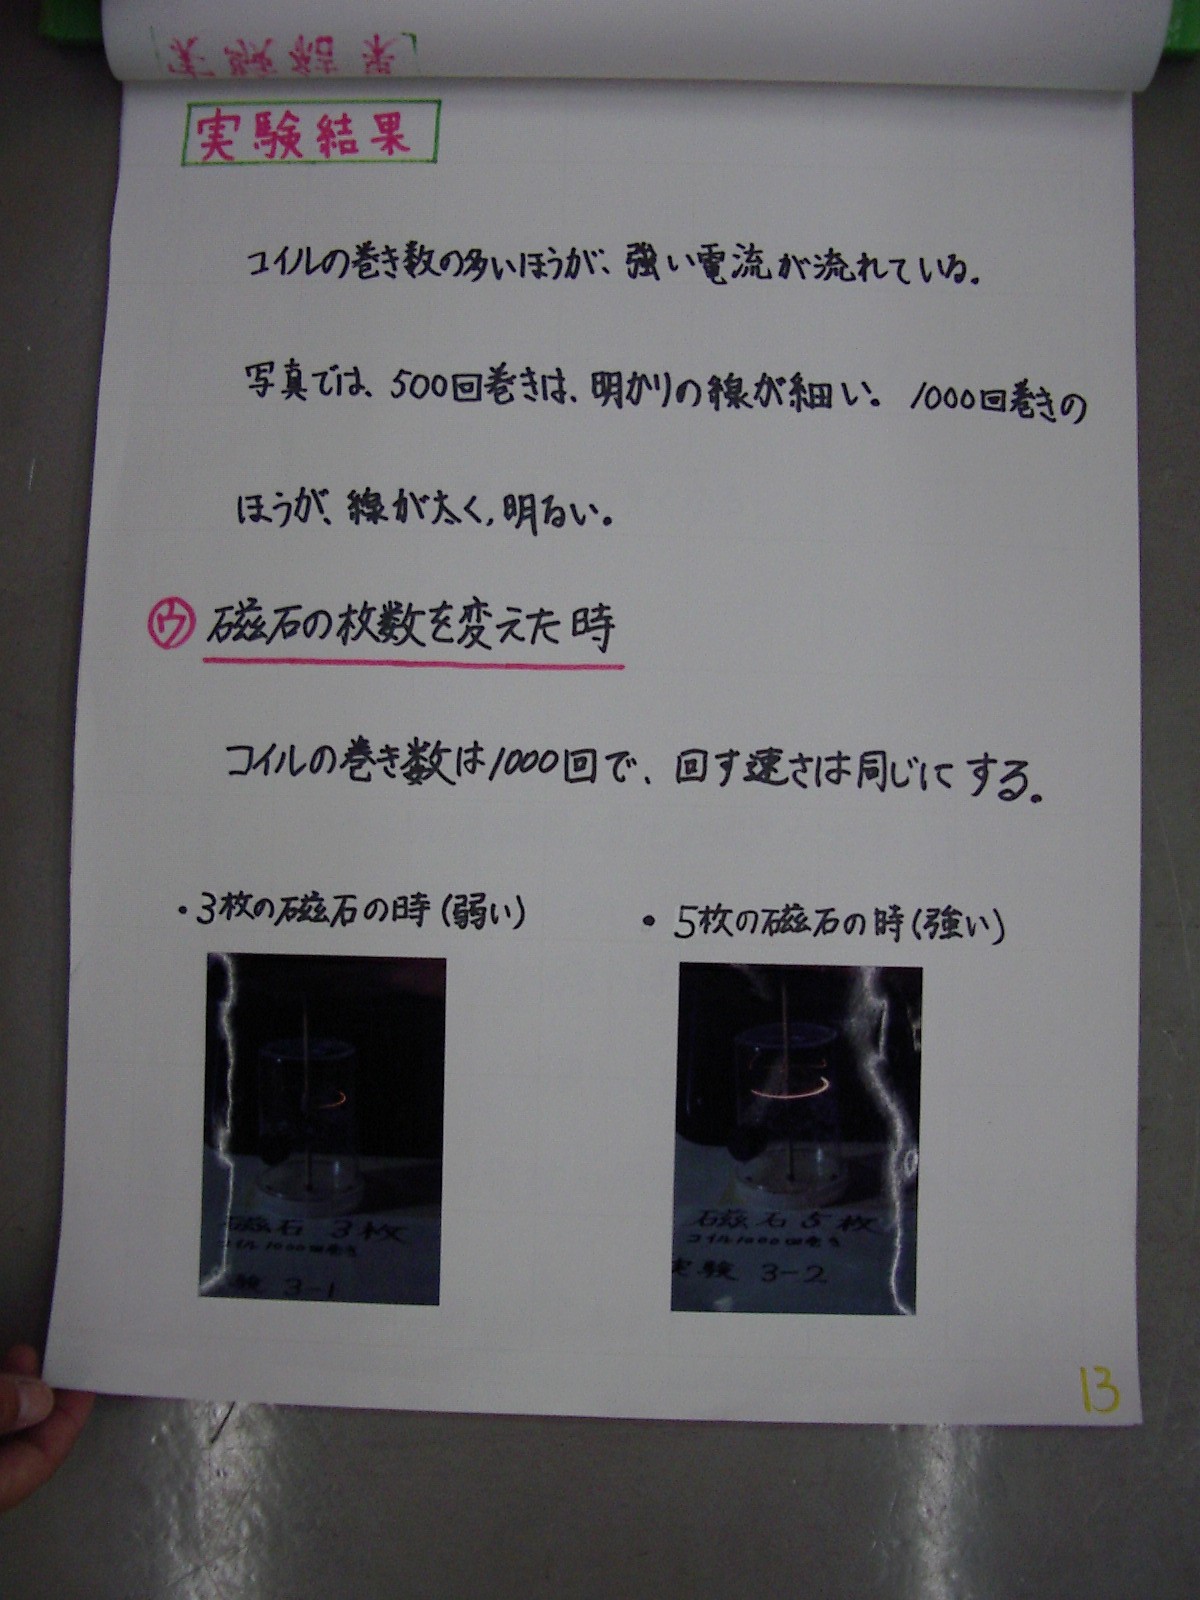 実験結果
コイルの巻き数の多いほうが、強い電流が流れている。
写真では、500回巻きは、明かりの線が細い。1000回巻きの
ほうが、線が太く、明るい。
㋒ 磁石の枚数を変えた時
コイルの巻き数は1000回で、回す速さは同じにする。
・3枚の磁石の時(弱い)
・5枚の磁石の時(強い)
磁石 3枚
コイル1000回巻き
実験 3-1
磁石 5枚
コイル1000回巻き
実験 3-2
13